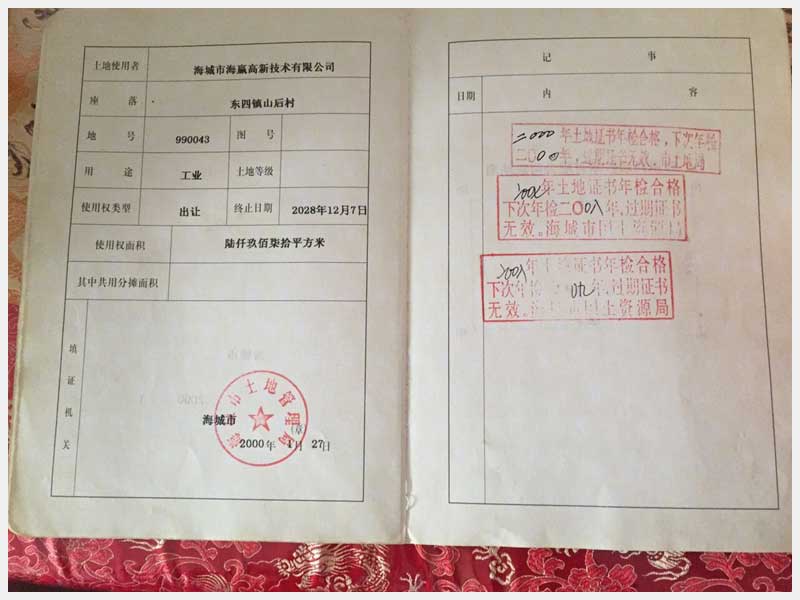 土地使用者 海城市海赢高新技术有限公司
座落 东四镇山后村
地号 990043 图号
用途 工业 土地等级
使用权类型 出让 终止日期 2028年12月7日
使用权面积 陆仟玖佰柒拾平方米
其中共用分摊面积
填证机关
市土地管理局
海城市
(章)
2000年 1月 27日
记事
日期 内容
二000年土地证书年检合格,下次年检
二00 年,过期证书无效.市土地局
年土地证书年检合格
下次年检二00八年,过期证书
无效。海城市国土资源局
年土地证书年检合格
下次年检 年,过期证书
无效。海城市国土资源局